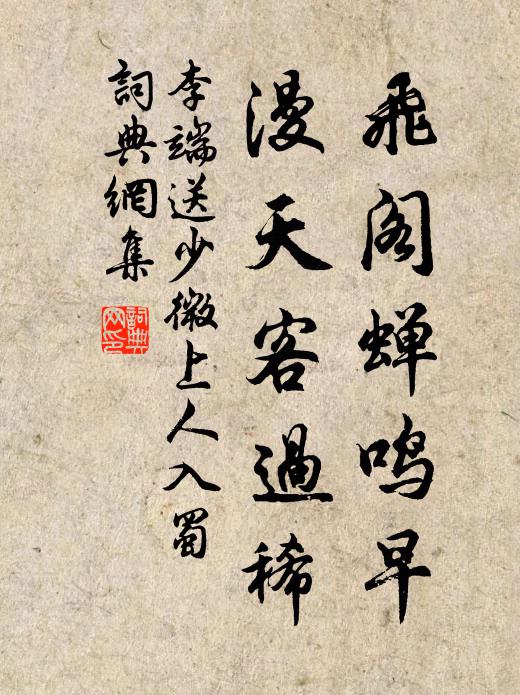 飛阁蝉鸣早
漫天客過稀
李端送少微上人入蜀
詞典網集
詞典網印